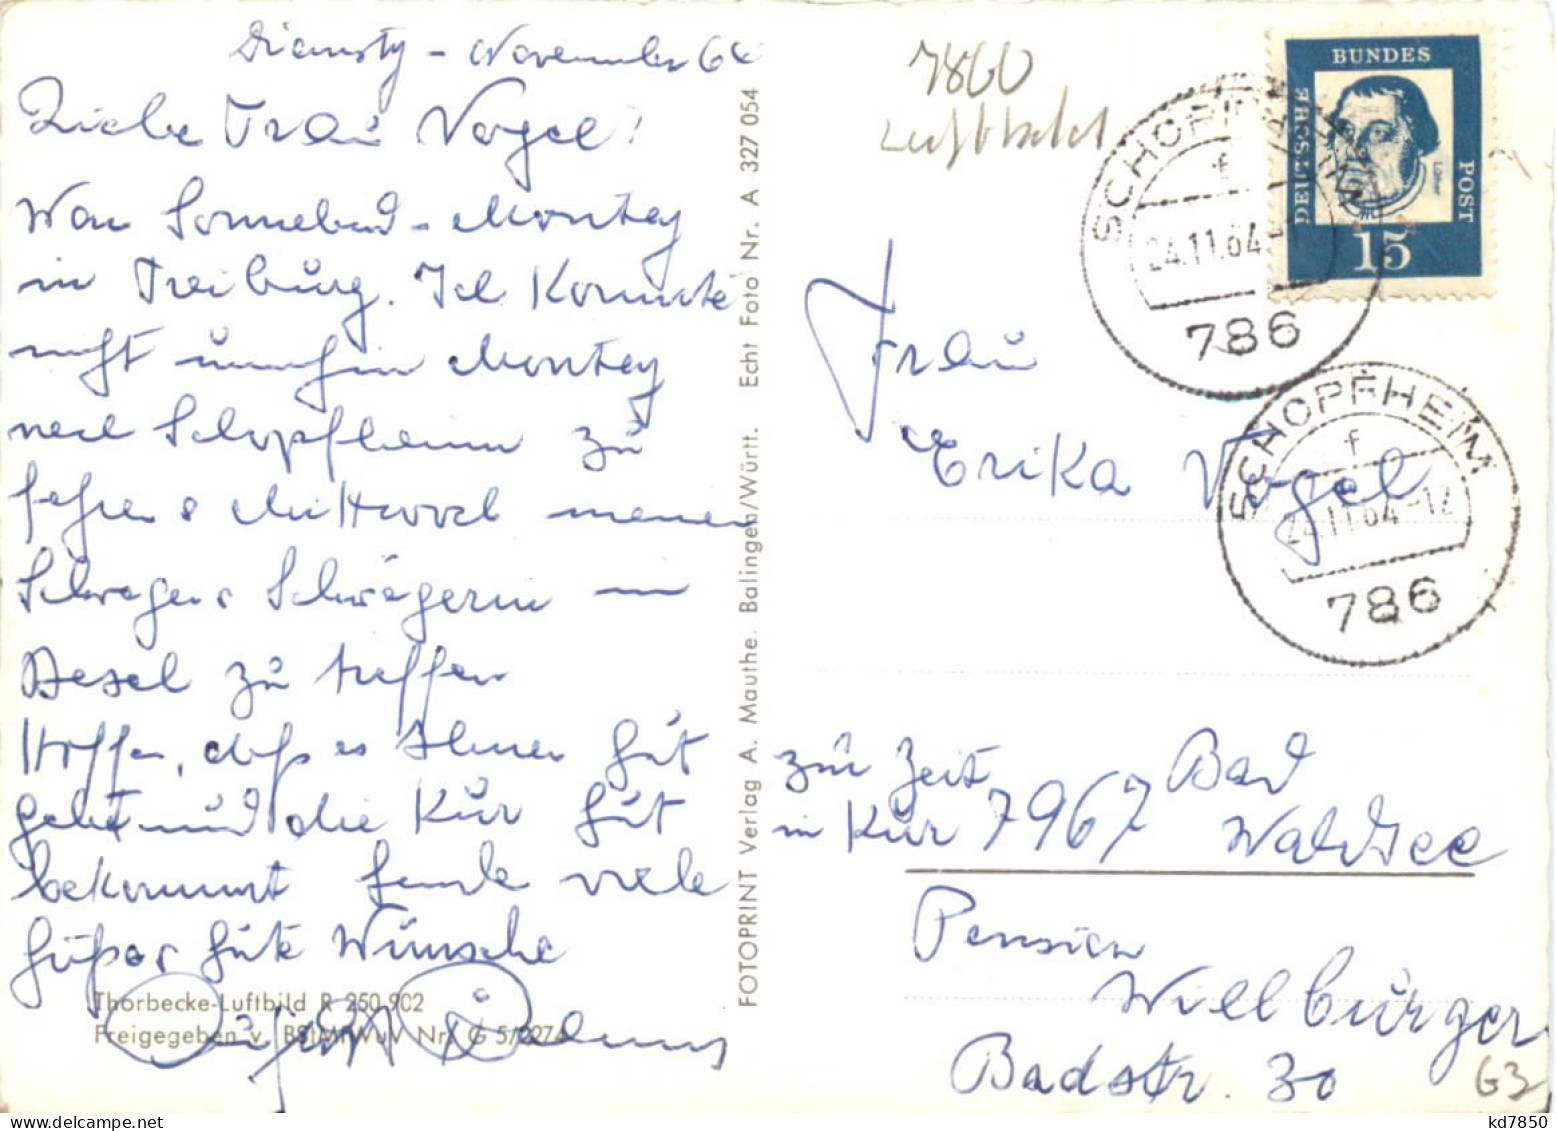 Dienstg - November 64
Liebe Frau Vogel!
War Sonnabend - Montag
in Freiburg. Ich konnte
nicht umhin Montag
nach Schopfheim zu
fahren & Mittwoch meinen
Schwager & Schwägerin in
Basel zu treffen
Hoffen, daß es Ihnen gut
geht und die Kur gut
bekommt sende viele
Grüße & gute Wünsche
Thorbecke-Luftbild R 250 902
Freigegeben v. BStMfWuV Nr. G 5/2274
FOTOPRINT Verlag A. Mauthe. Balingen/Württ. Echt Foto Nr. A 327 054
7860
Luftbild
DEUTSCHE BUNDES POST
15
SCHOPFHEIM
f
24.11.64
786
SCHOPFHEIM
f
24.11.64-12
786
Frau
Erika Vogel
zur Zeit
in Kur 7967 Bad
Waldsee
Pension
Willburger
Badstr. 30
G3
kd7850